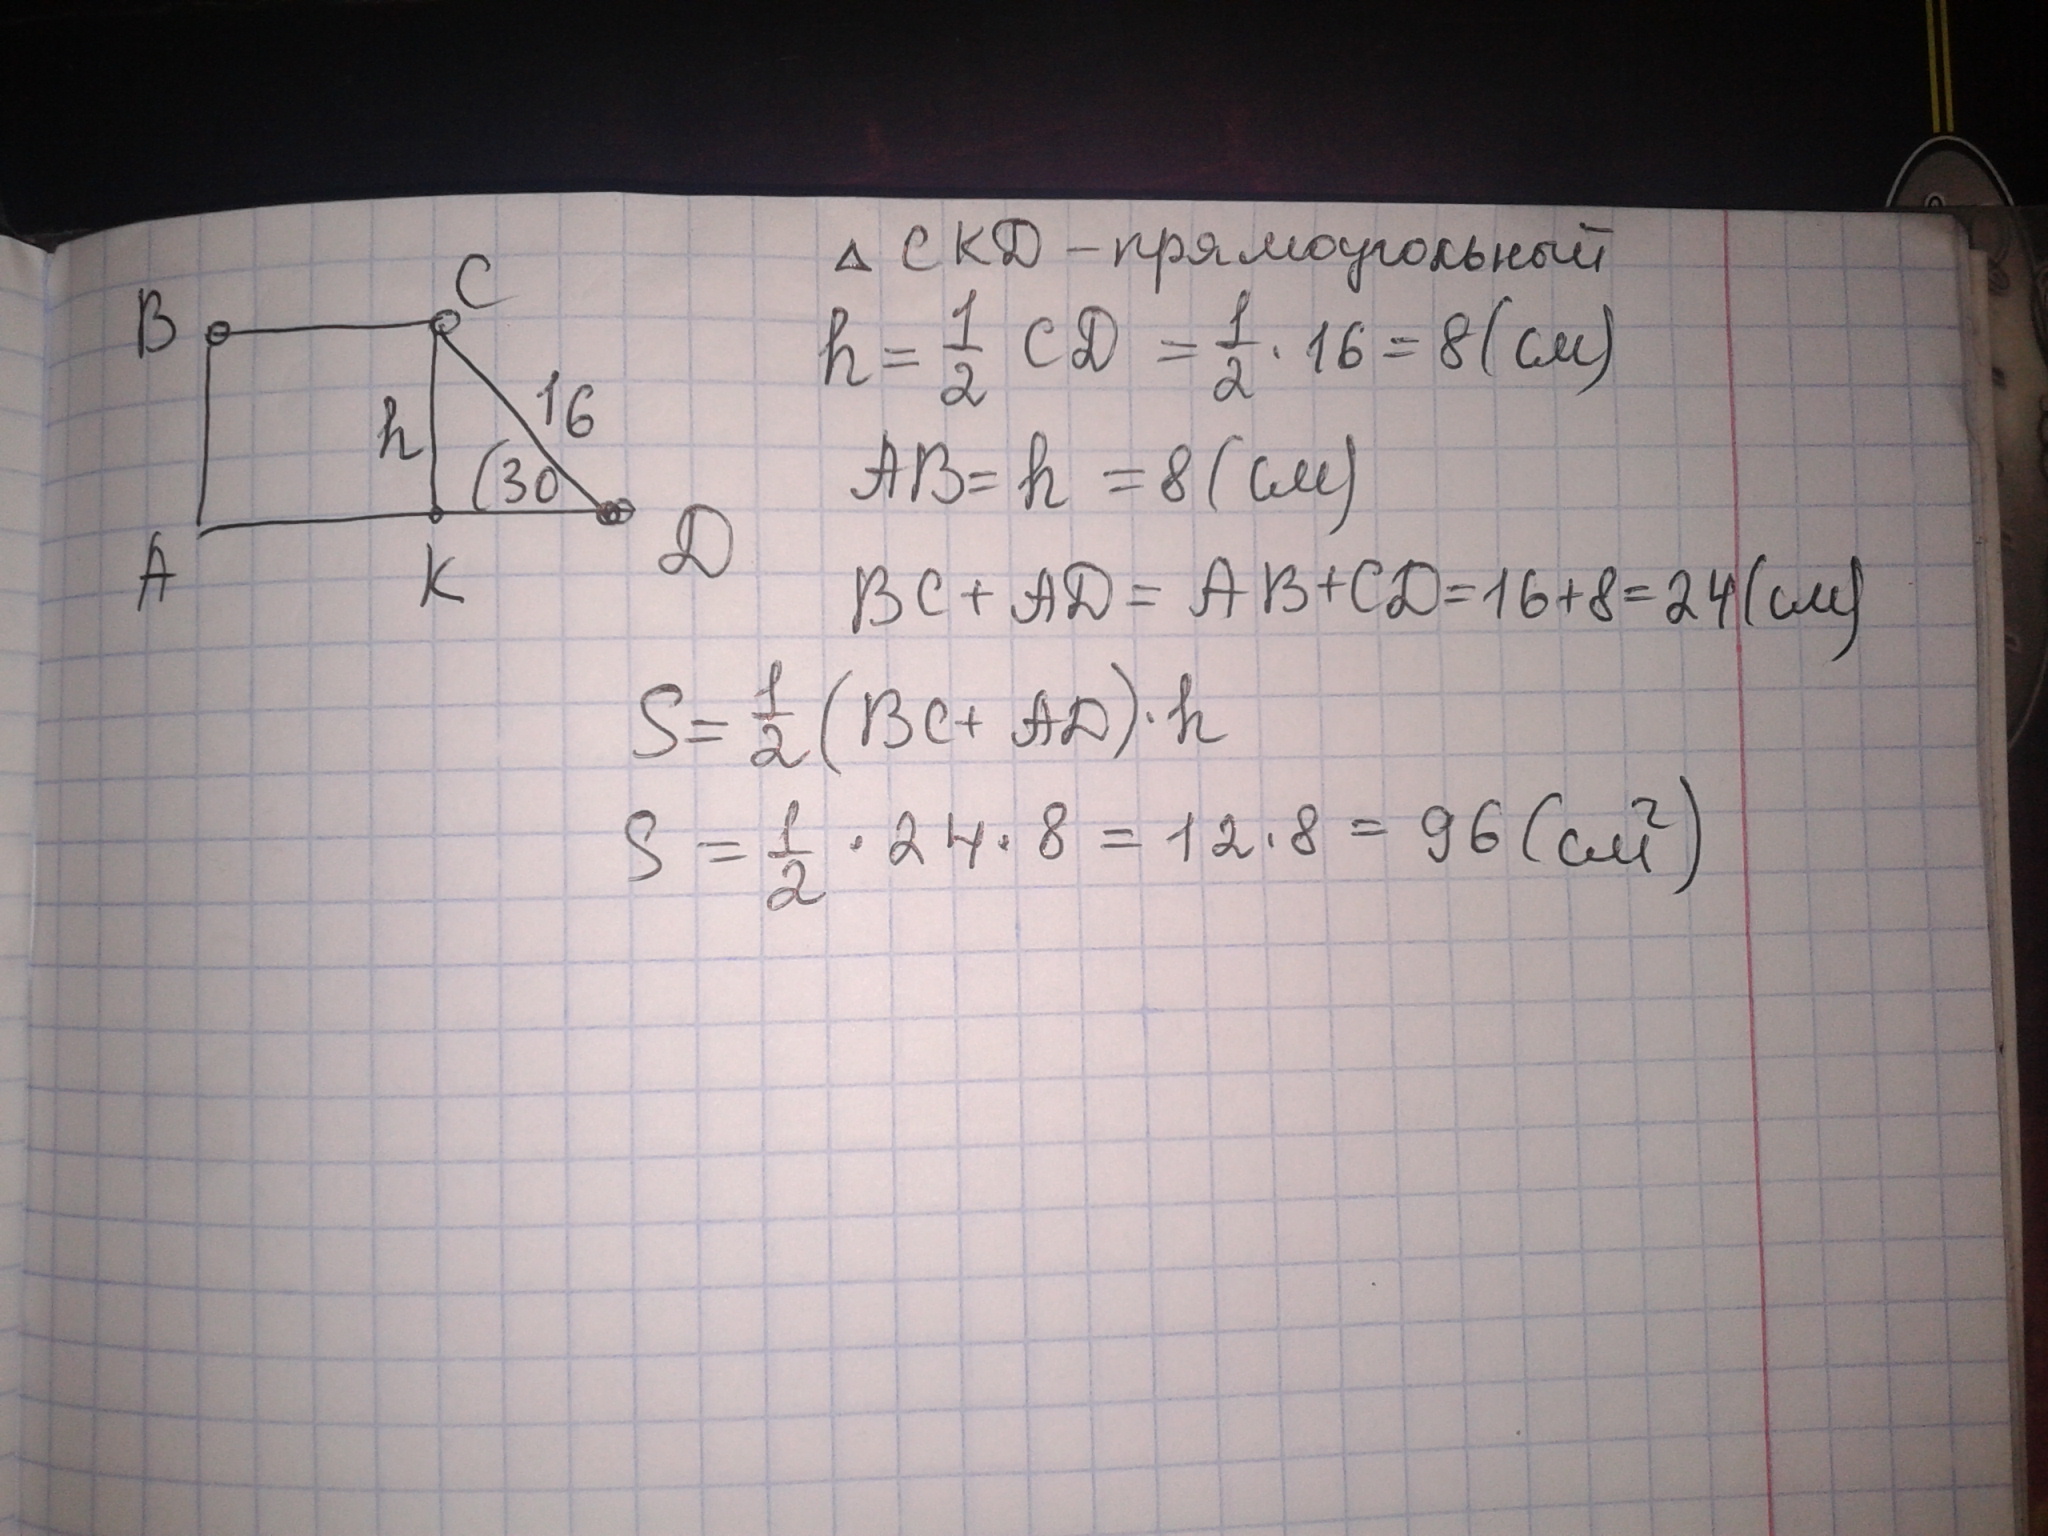 B
C
h
16
(30
A
K
D
△ CKD – прямоугольный
h = 1/2 CD = 1/2 · 16 = 8 (см)
AB = h = 8 (см)
BC + AD = AB + CD = 16 + 8 = 24 (см)
S = 1/2 (BC + AD) · h
S = 1/2 · 24 · 8 = 12 · 8 = 96 (см²)